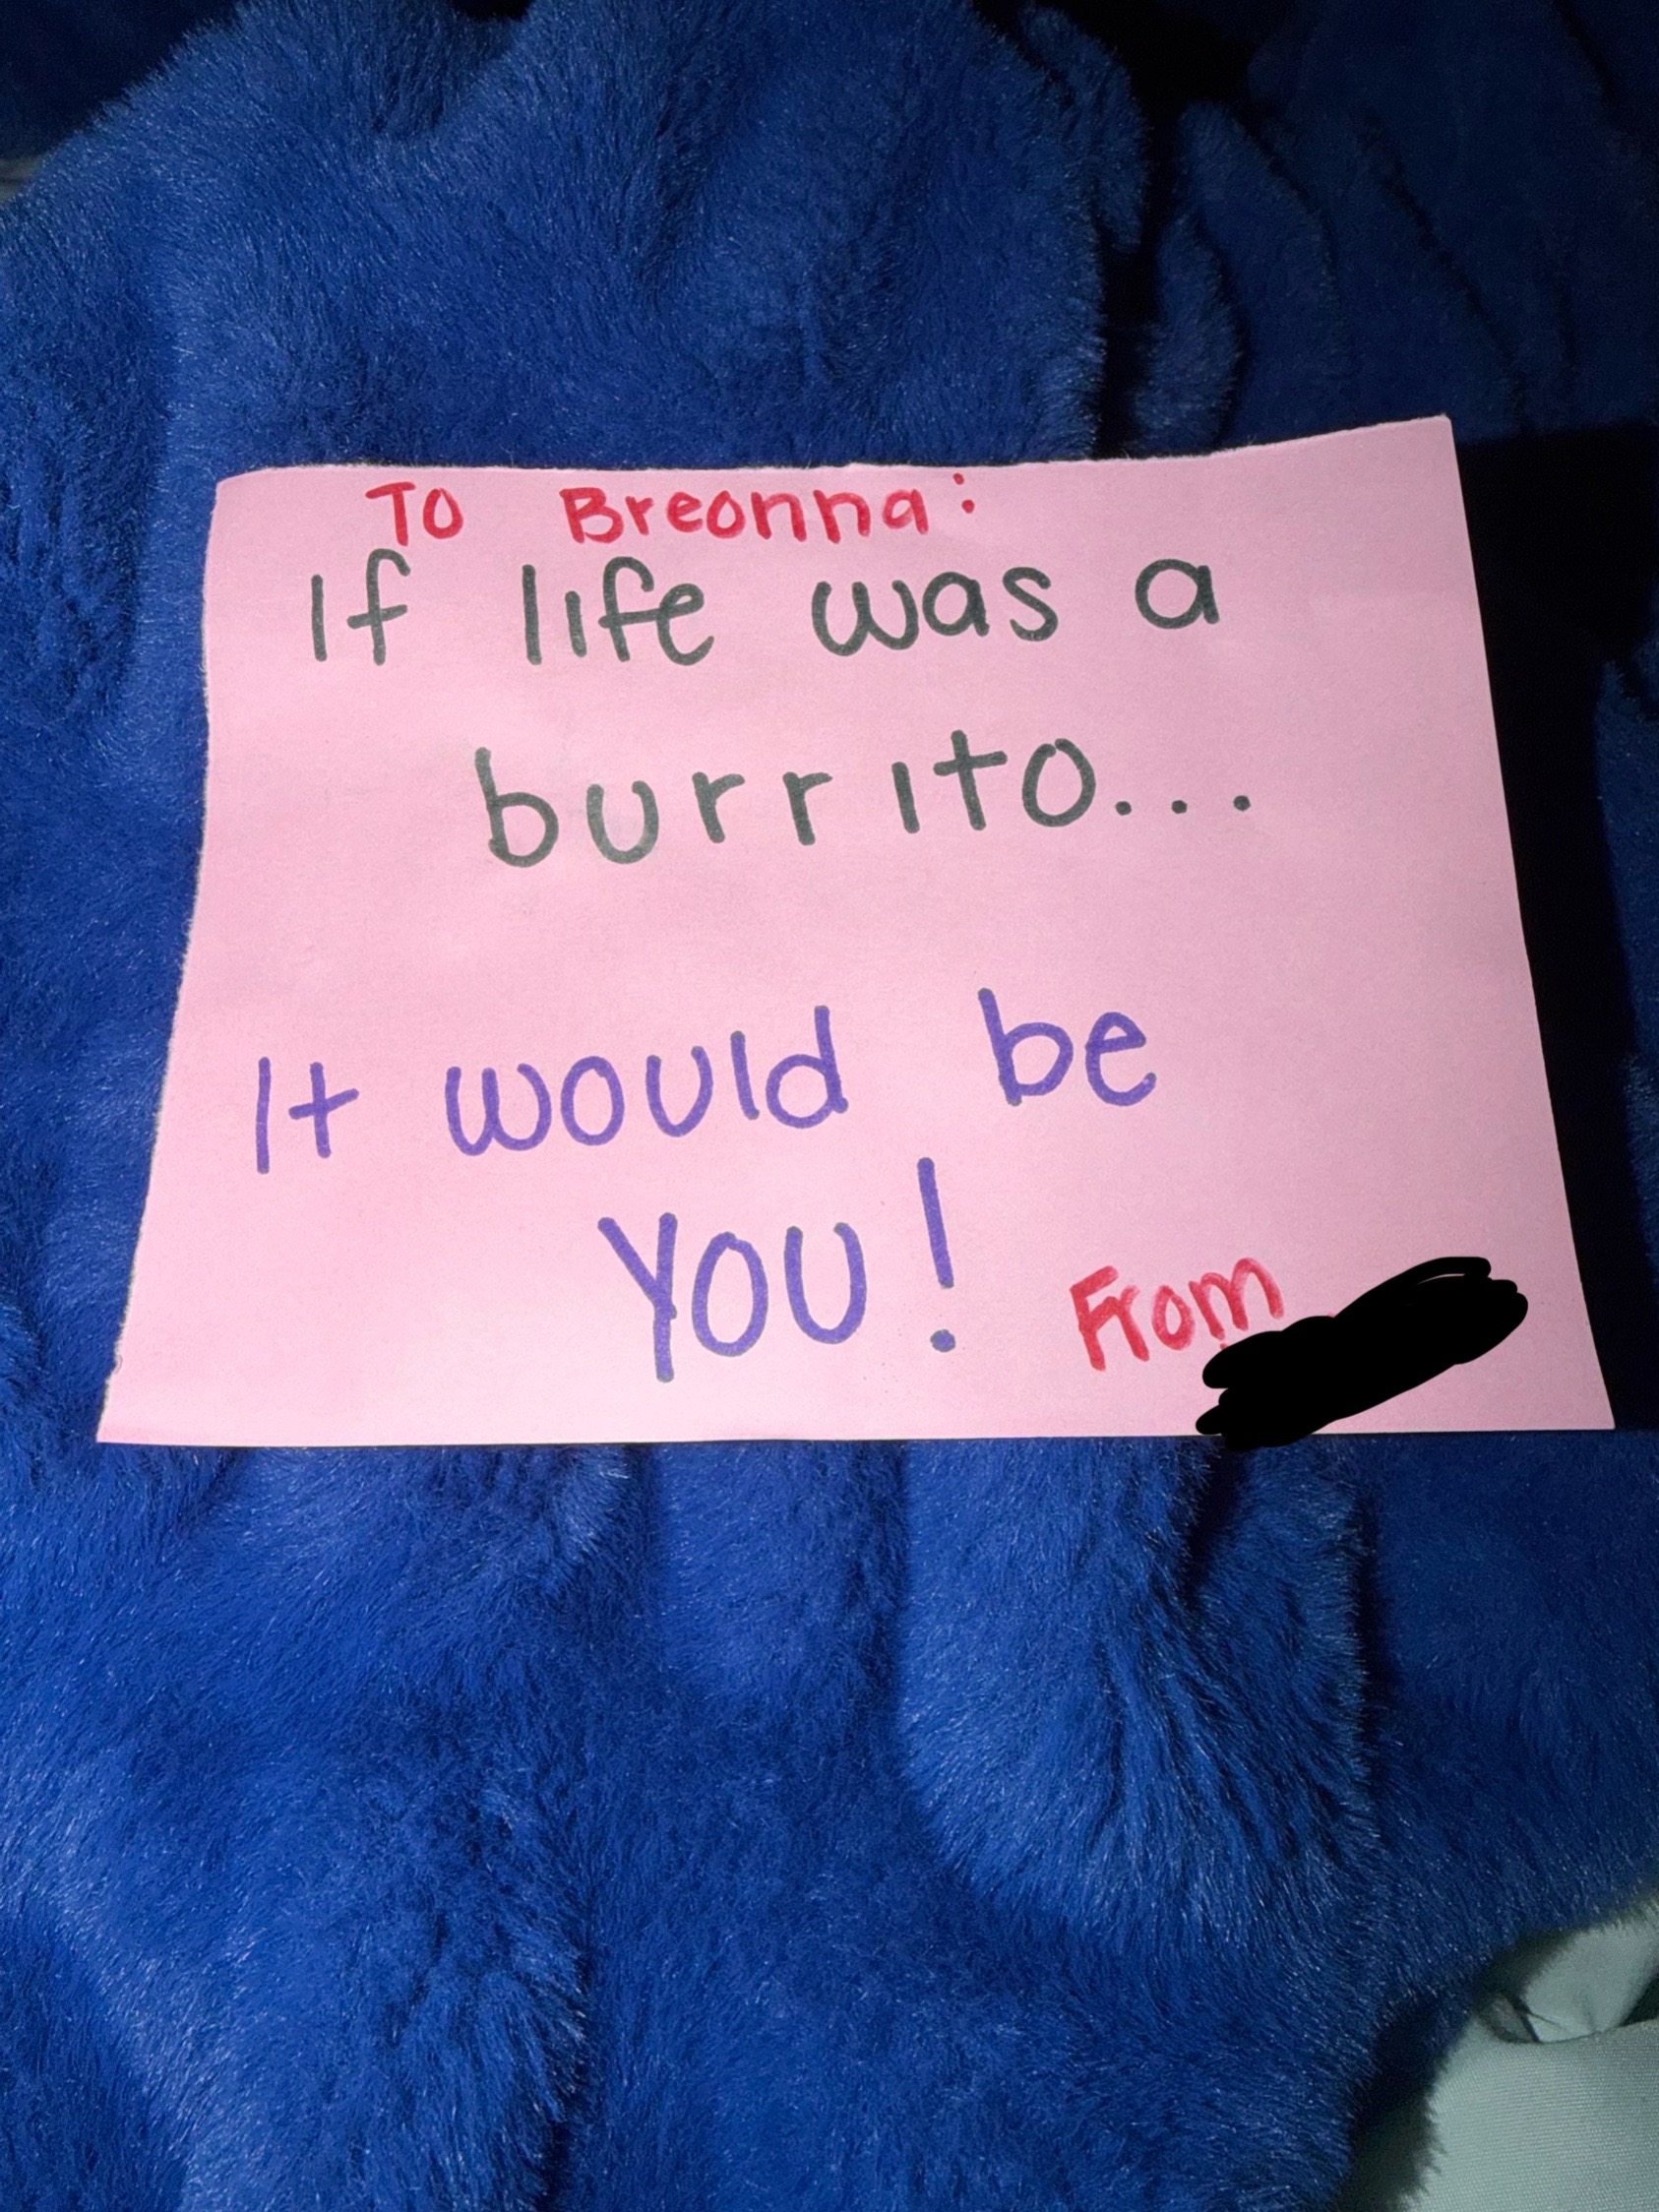 TO Breonna:
If life was a
burrito...
It would be
YOU!
From